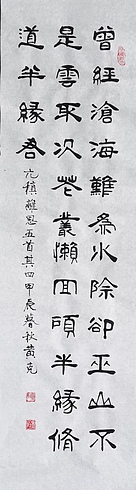 曾經滄海難為水除卻巫山不
是雲取次花叢懶回頋半緣脩
道半緣君
元稹離思五首其四甲辰暮秋黄克